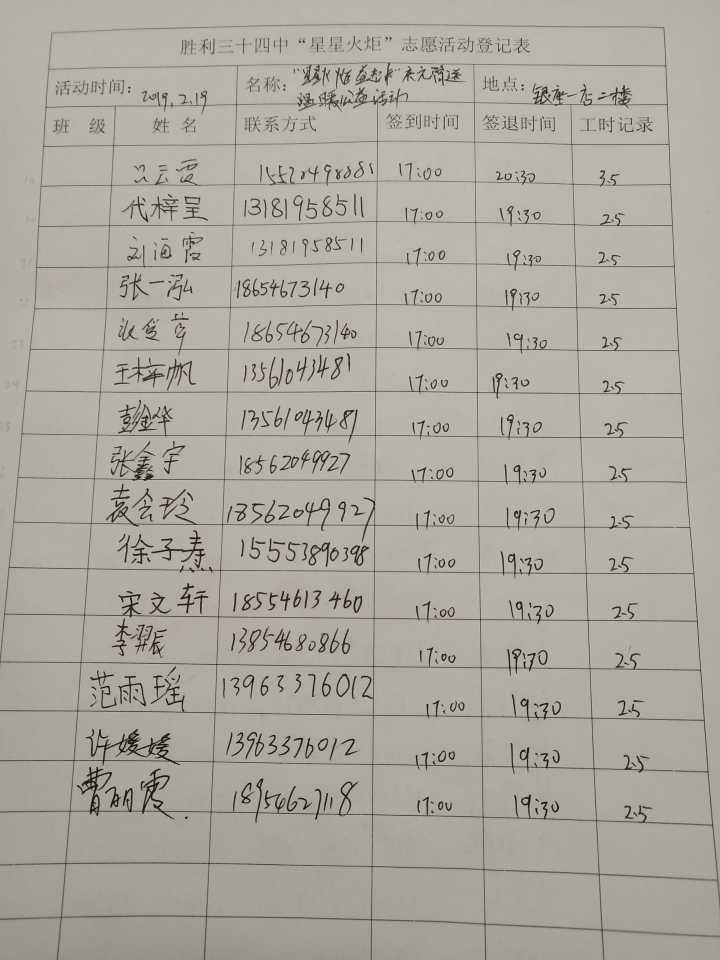 胜利三十四中“星星火炬”志愿活动登记表
活动时间：2019.2.19 名称：“星星火炬益起来”庆元宵送 地点：银座一店二楼
温暖公益活动
班 级 姓 名 联系方式 签到时间 签退时间 工时记录
吕云霞 17:00 20:30 3.5
代梓呈 13181958511 17:00 19:30 2.5
刘海霞 13181958511 17:00 19:30 2.5
张一泓 18654673140 17:00 19:30 2.5
18654673140 17:00 19:30 2.5
王梓帆 13561043481 17:00 19:30 2.5
彭金华 13561043481 17:00 19:30 2.5
张鑫宇 18562049927 17:00 19:30 2.5
袁会玲 18562049927 17:00 19:30 2.5
徐子焘 15553890398 17:00 19:30 2.5
宋文轩 18554613460 17:00 19:30 2.5
李羿辰 13854680866 17:00 19:30 2.5
范雨瑶 13963376012 17:00 19:30 2.5
许媛媛 13963376012 17:00 19:30 2.5
曹丽霞. 18954627118 17:00 19:30 2.5